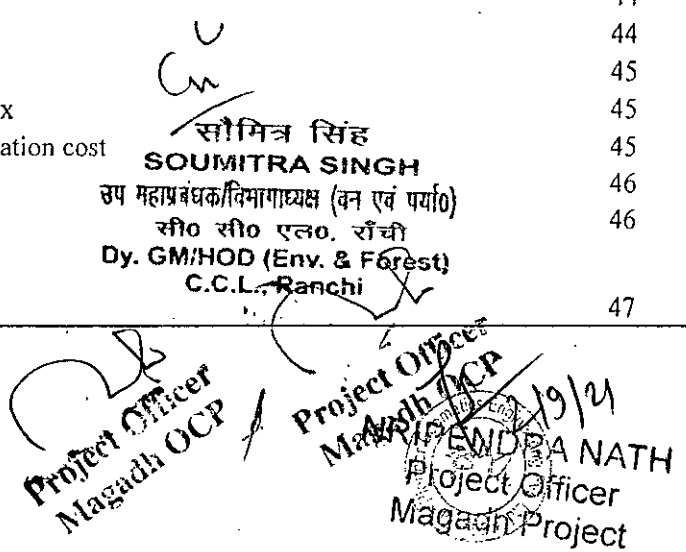 44
45
x
45
ation cost
45
46
46
47
सौमित्र सिंह
SOUMITRA SINGH
उप महाप्रबंधक/विभागाध्यक्ष (वन एवं पर्या०)
सी० सी० एल०, राँची
Dy. GM/HOD (Env. & Forest)
C.C.L., Ranchi
Project Officer
Magadh OCP
Project Officer
Magadh OCP
NATH
Project Officer
Magadh Project